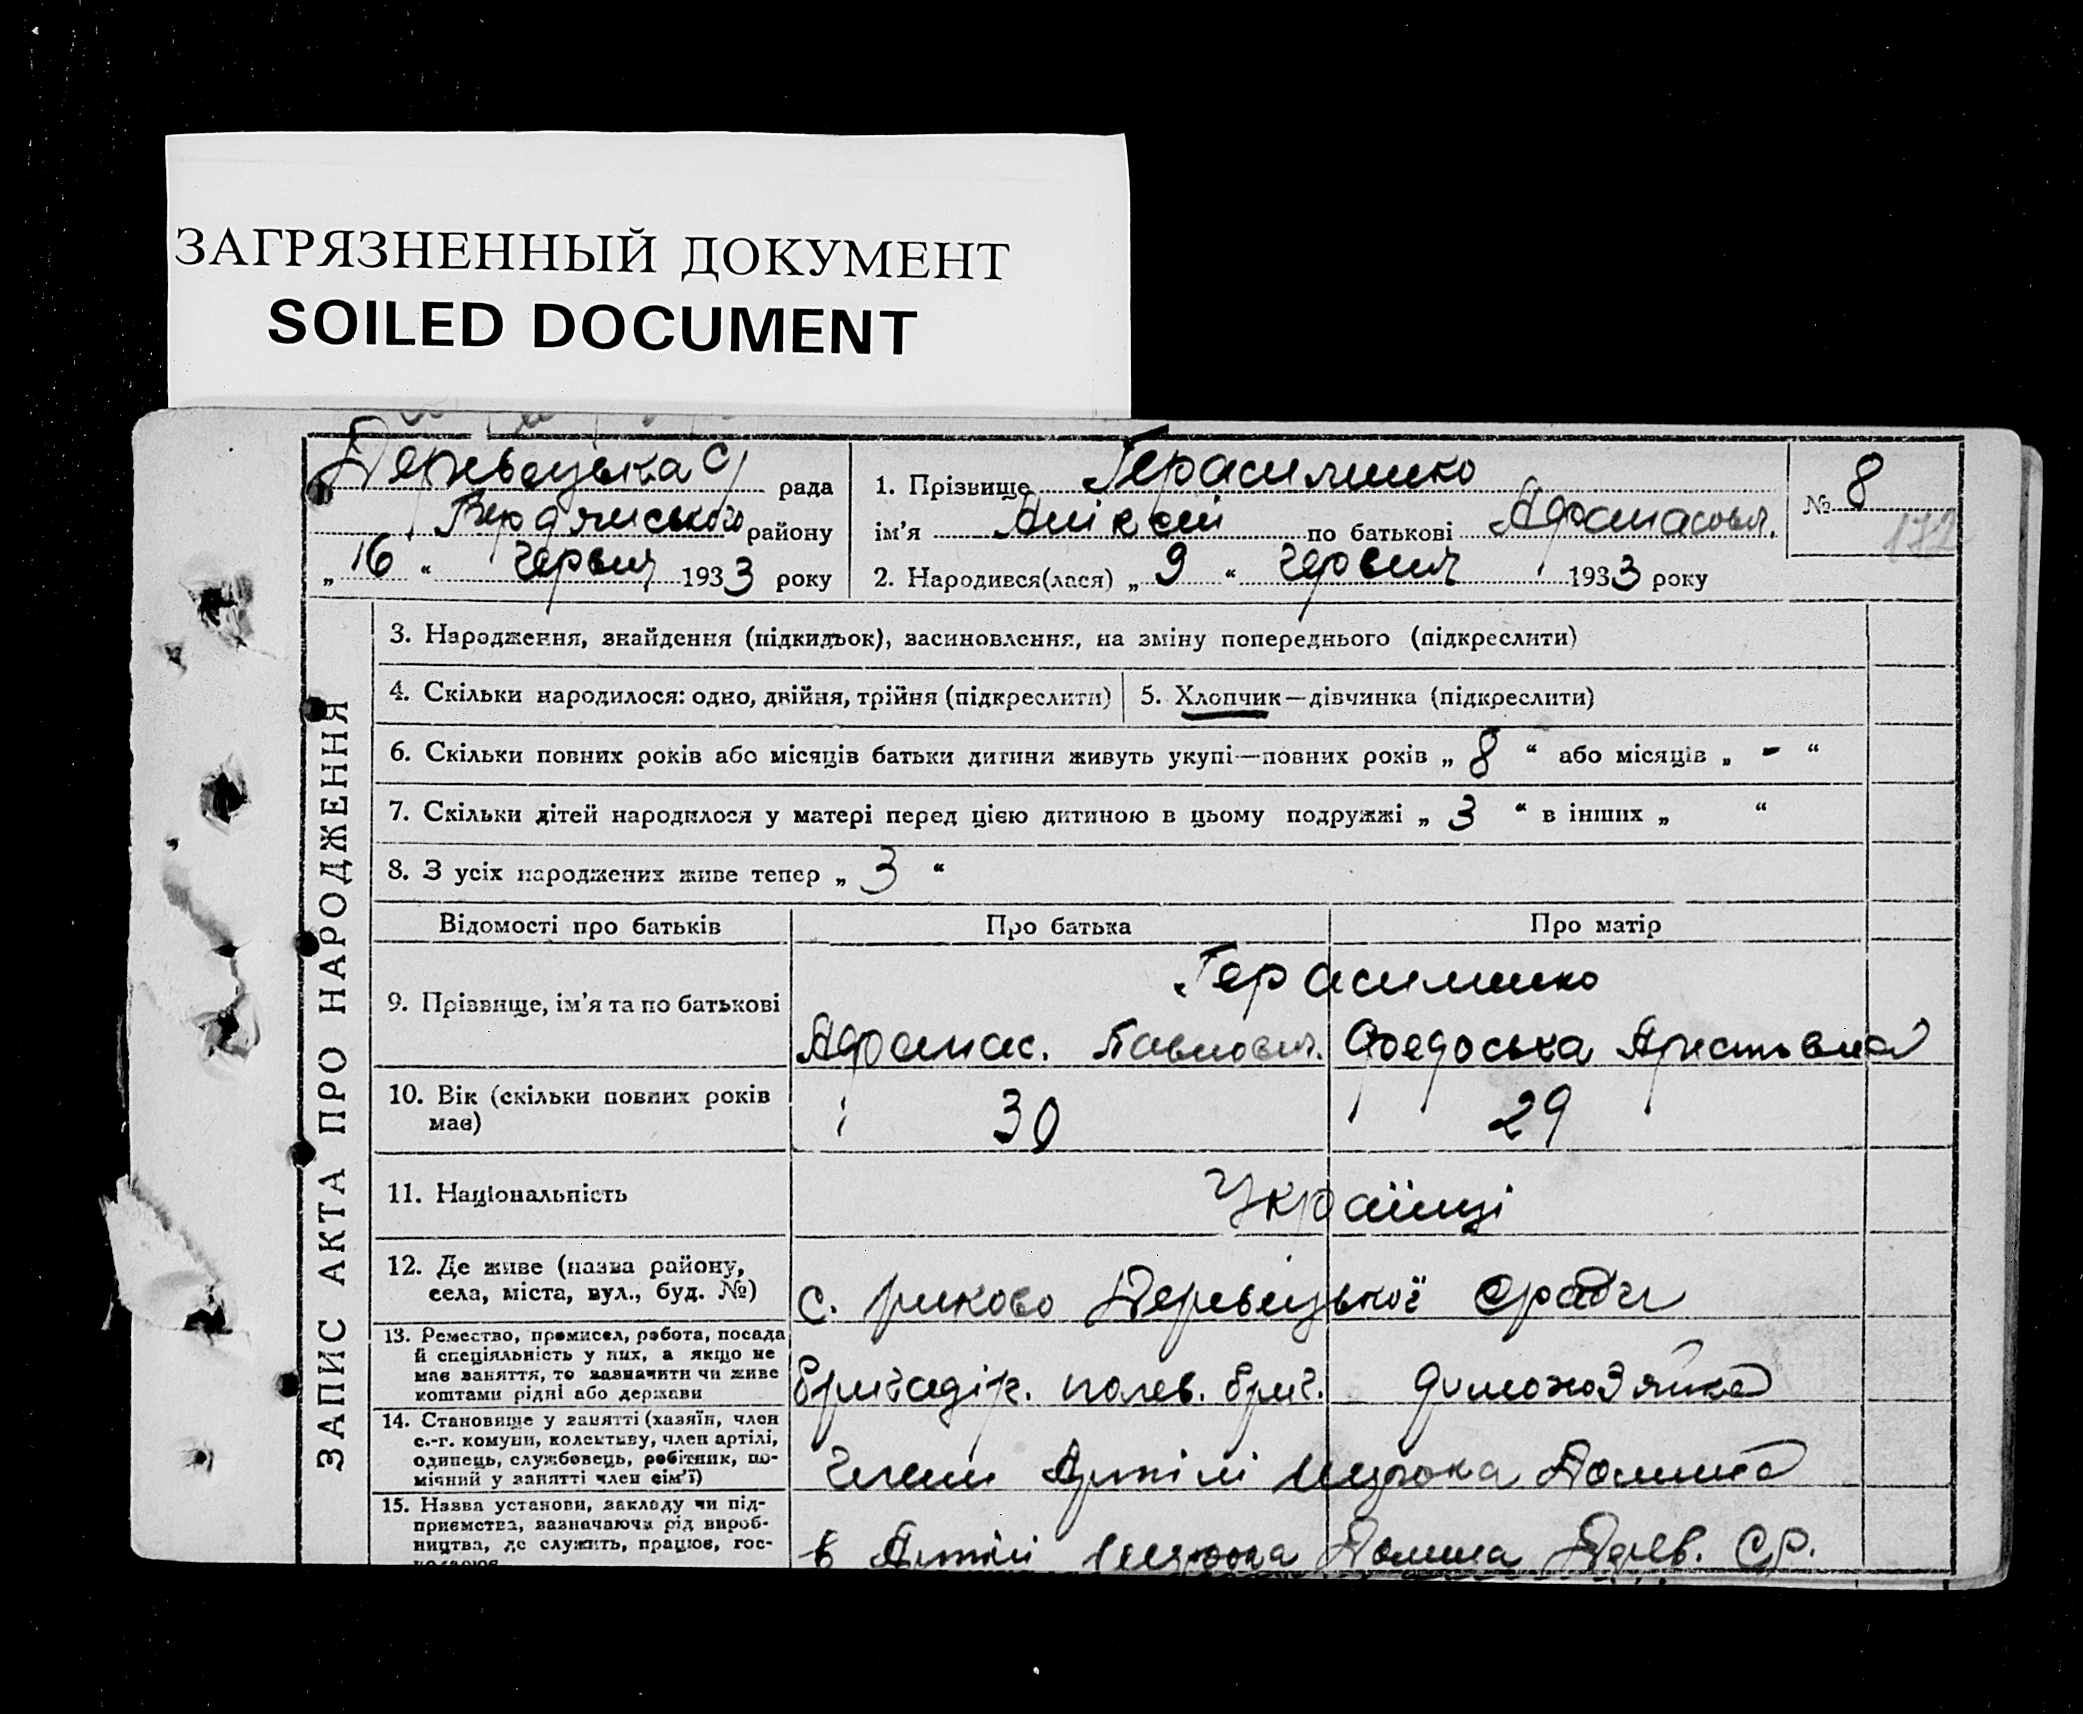 ЗАГРЯЗНЕННЫЙ ДОКУМЕНТ
SOILED DOCUMENT
рада
Бердянського району
„ 16 “ червня 1933 року
1. Прізвище Герасименко
ім’я Аліксій по батькові Афанасович.
2. Народився(лася) „ 9 “ червня 1933 року
№ 8
172
ЗАПИС АКТА ПРО НАРОДЖЕННЯ
3. Народження, знайдення (підкидьок), засиновлення, на зміну попереднього (підкреслити)
4. Скільки народилося: одно, двійня, трійня (підкреслити)
5. Хлопчик—дівчинка (підкреслити)
6. Скільки повних років або місяців батьки дитини живуть укупі—повних років „ 8 “ або місяців „ - “
7. Скільки дітей народилося у матері перед цією дитиною в цьому подружжі „ 3 “ в інших „ “
8. З усіх народжених живе тепер „ 3 “
Відомості про батьків
Про батька
Про матір
9. Прізвище, ім’я та по батькові
Герасименко
Афанас. Павлович.
Федоська
10. Вік (скільки повних років
має)
30
29
11. Національність
Українці
12. Де живе (назва району,
села, міста, вул., буд. №)
с.
13. Ремество, промисел, робота, посада
й спеціяльність у них, а якщо не
має заняття, то зазначити чи живе
коштами рідні або держави
бригадір. полев. бриг.
домохозяйка
14. Становище у занятті (хазяїн, член
с.-г. комуни, колективу, член артілі,
одинець, службовець, робітник, по-
мічний у занятті член сім’ї)
член Артілі Широка Долина
15. Назва установи, закладу чи під-
приємства, зазначаючи рід вироб-
ництва, де служить, працює, гос-
в Артілі Широка Долина С.Р.